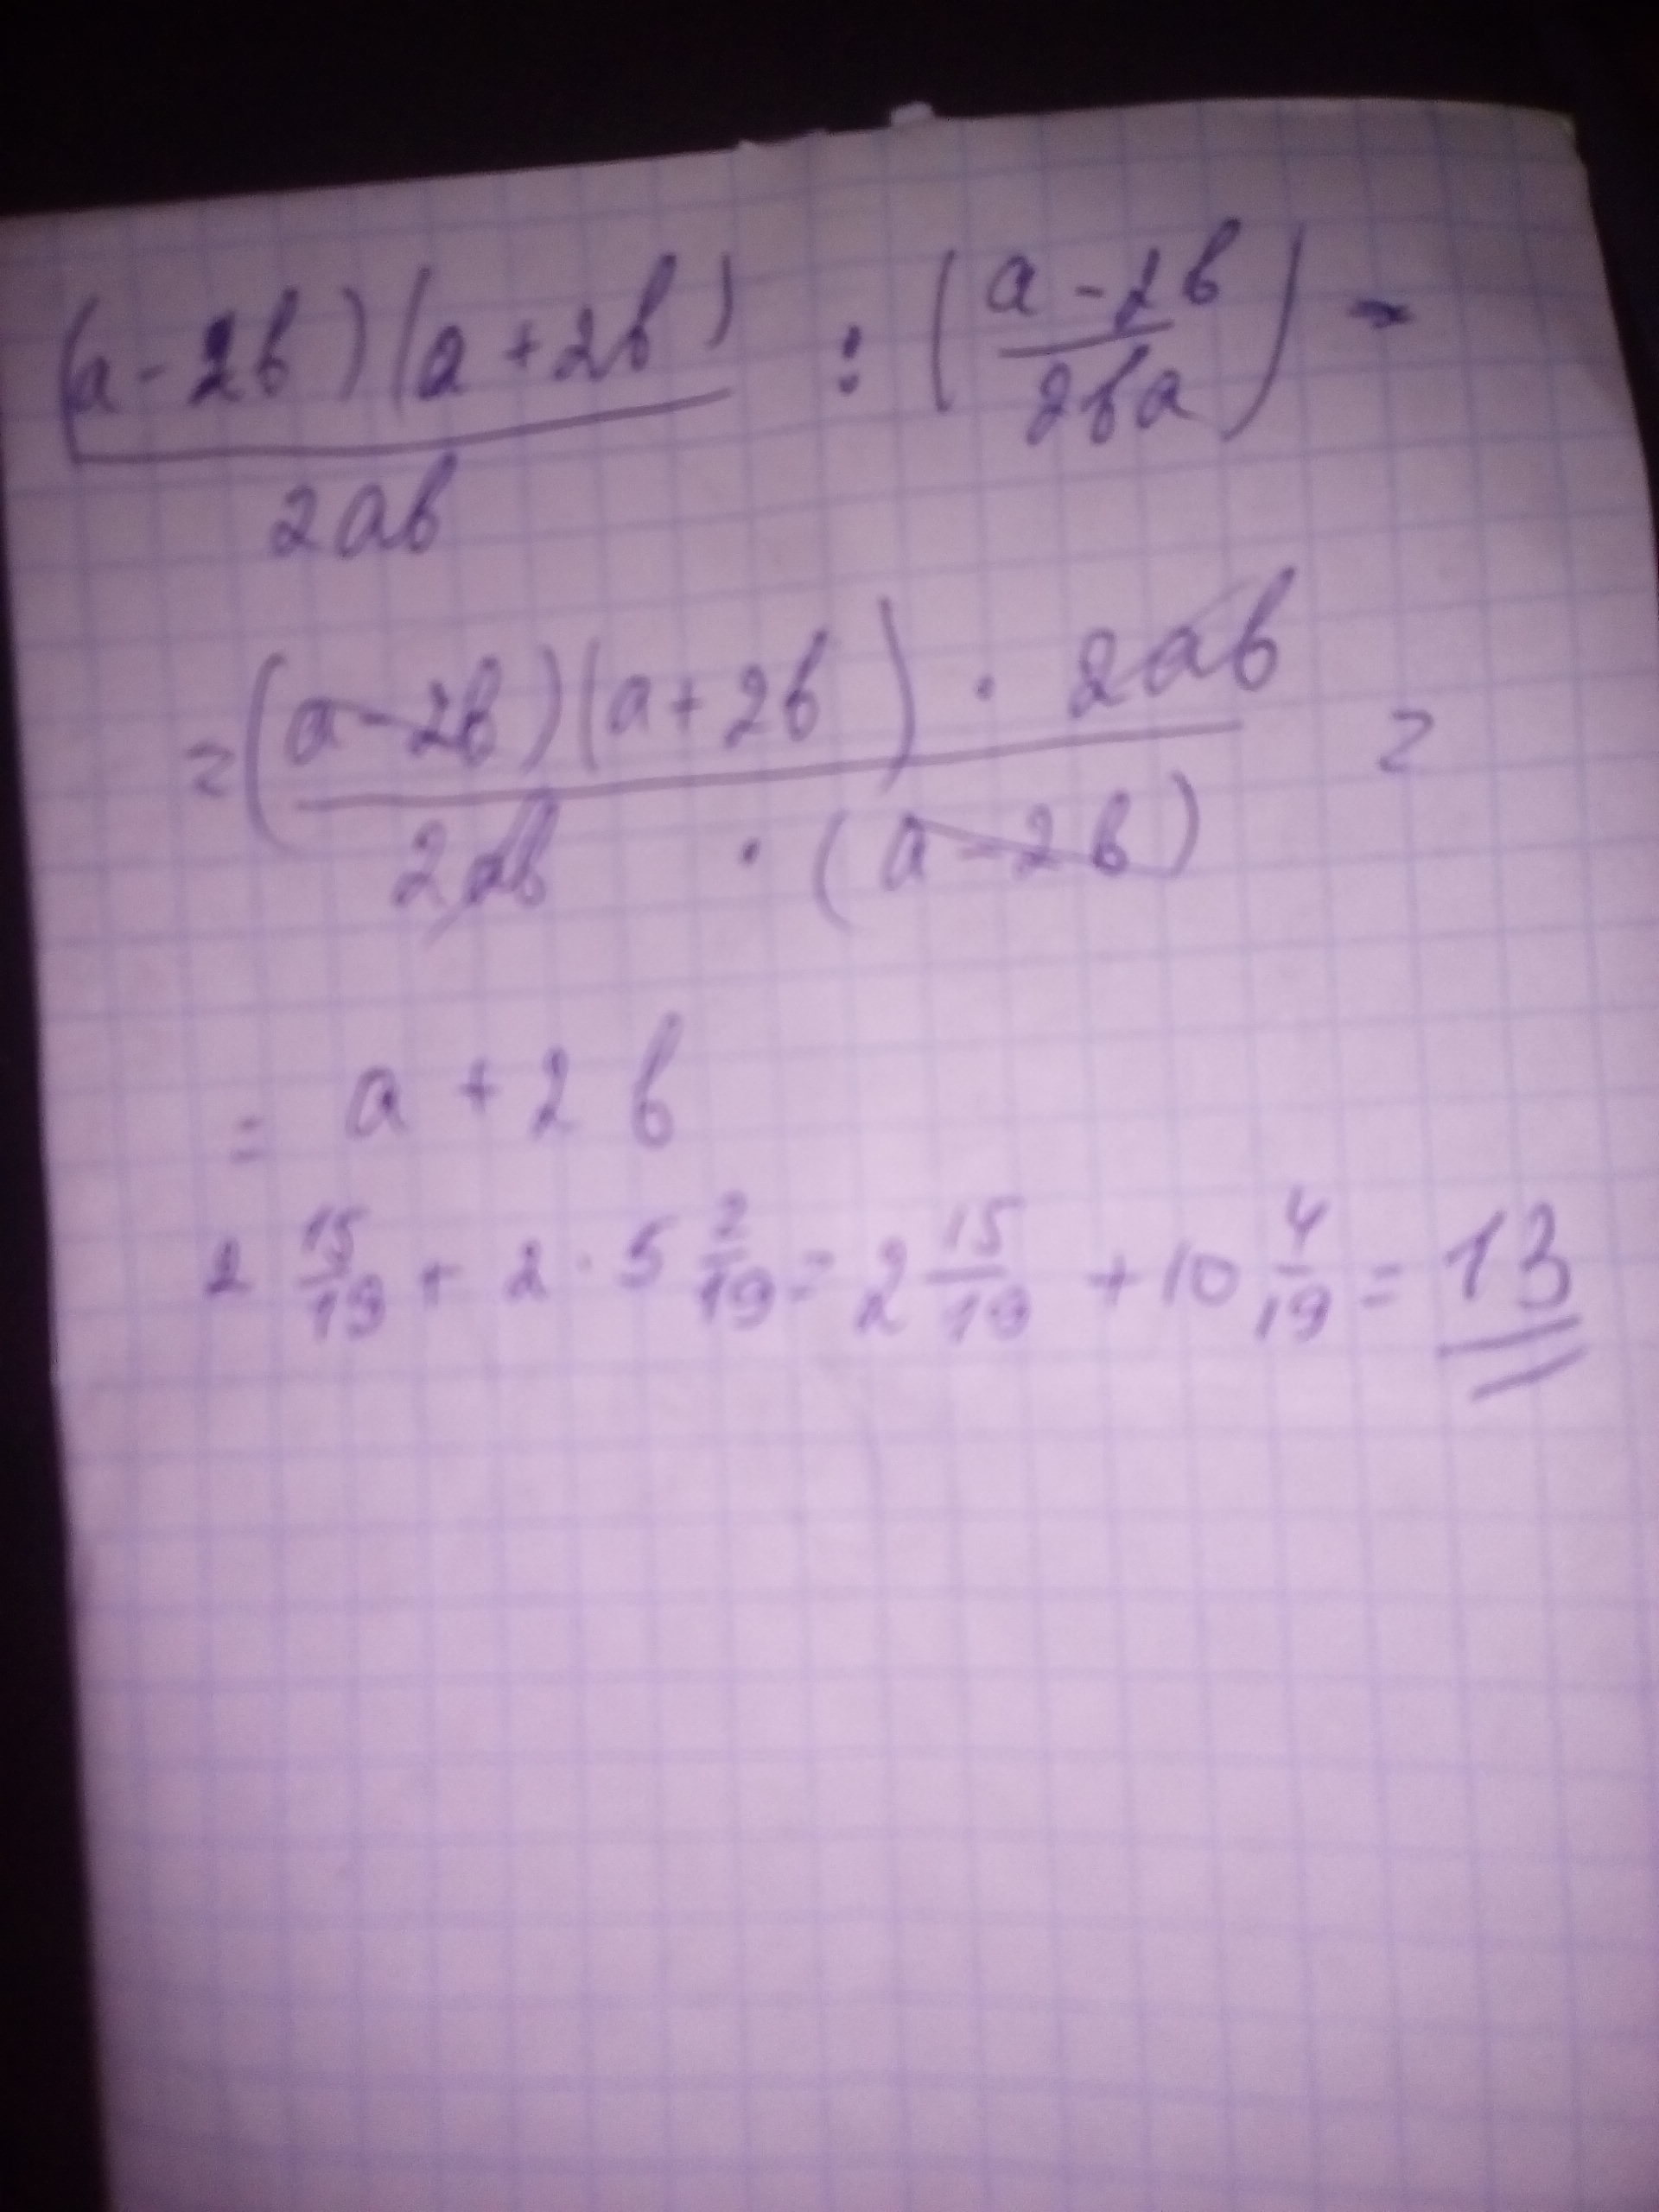 (a-2b)(a+2b)/2ab : (a-2b/2ba) -
=(a-2b)(a+2b) · 2ab/2ab · (a-2b) =
= a + 2b
2 15/19 + 2 · 5 2/19 = 2 15/19 + 10 4/19 = 13